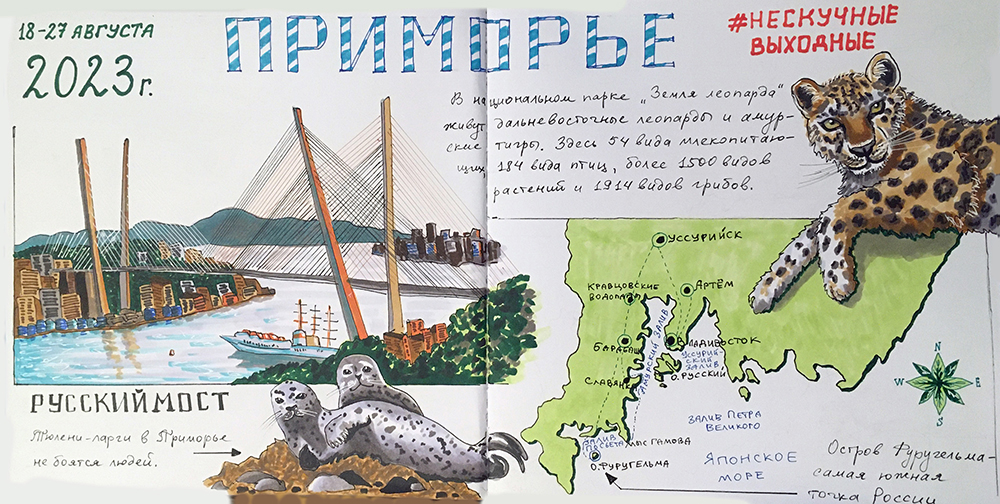 18-27 АВГУСТА
2023 г.
ПРИМОРЬЕ
#НЕСКУЧНЫЕ
ВЫХОДНЫЕ
В национальном парке „Земля леопарда"
живут дальневосточные леопарды и амур-
ские тигры. Здесь 54 вида млекопитаю-
щих, 184 вида птиц, более 1500 видов
растений и 1914 видов грибов.
УССУРИЙСК
КРАВЦОВСКИЕ
ВОДОПАДЫ
АРТЁМ
БАРАБАШ
ВЛАДИВОСТОК
АМУРСКИЙ ЗАЛИВ
УССУРИЙ-
СКИЙ
ЗАЛИВ
О. РУССКИЙ
СЛАВЯНКА
ЗАЛИВ
ПОСЬЕТА
МЫС ГАМОВА
О. ФУРУГЕЛЬМА
ЗАЛИВ ПЕТРА
ВЕЛИКОГО
ЯПОНСКОЕ
МОРЕ
N
W
E
S
Остров Фуругельма-
самая южная
точка России
РУССКИЙ МОСТ
Тюлени-ларги в Приморье
не боятся людей.